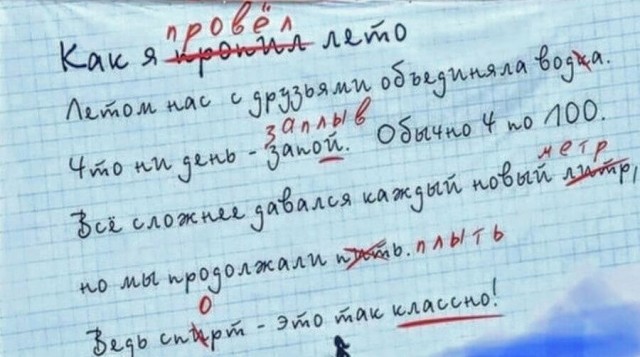 провёл
Как я пропил лето
Летом нас с друзьями объединяла водка.
заплыв
Что ни день - запой. Обычно 4 по 100.
метр
Всё сложнее давался каждый новый литр,
но мы продолжали пить. плыть
о
Ведь спирт - это так классно!